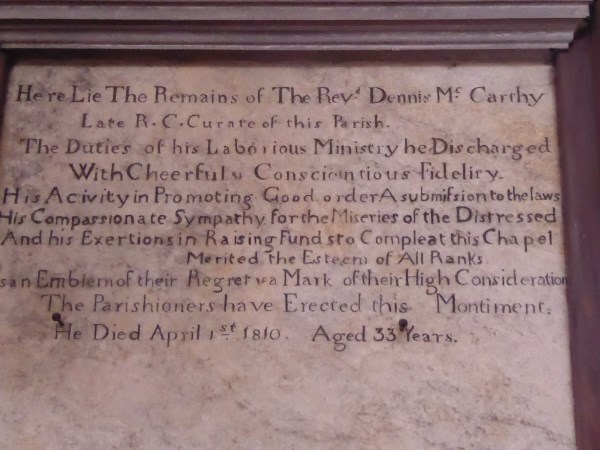 Here Lie The Remains of The Revd Dennis Mc Carthy
Late R. C. Curate of this Parish.
The Duties of his Laborious Ministry he Discharged
With Cheerfull Conscientious Fidelity.
His Acivity in Promoting Good order A submifsion to the laws
His Compassionate Sympathy for the Miseries of the Distressed
And his Exertions in Raising Funds to Compleat this Chapel
Merited the Esteem of All Ranks
s an Emblem of their Regret va Mark of their High Consideration
The Parishioners have Erected this Montiment,
He Died April 1st 1810. Aged 33 Years.